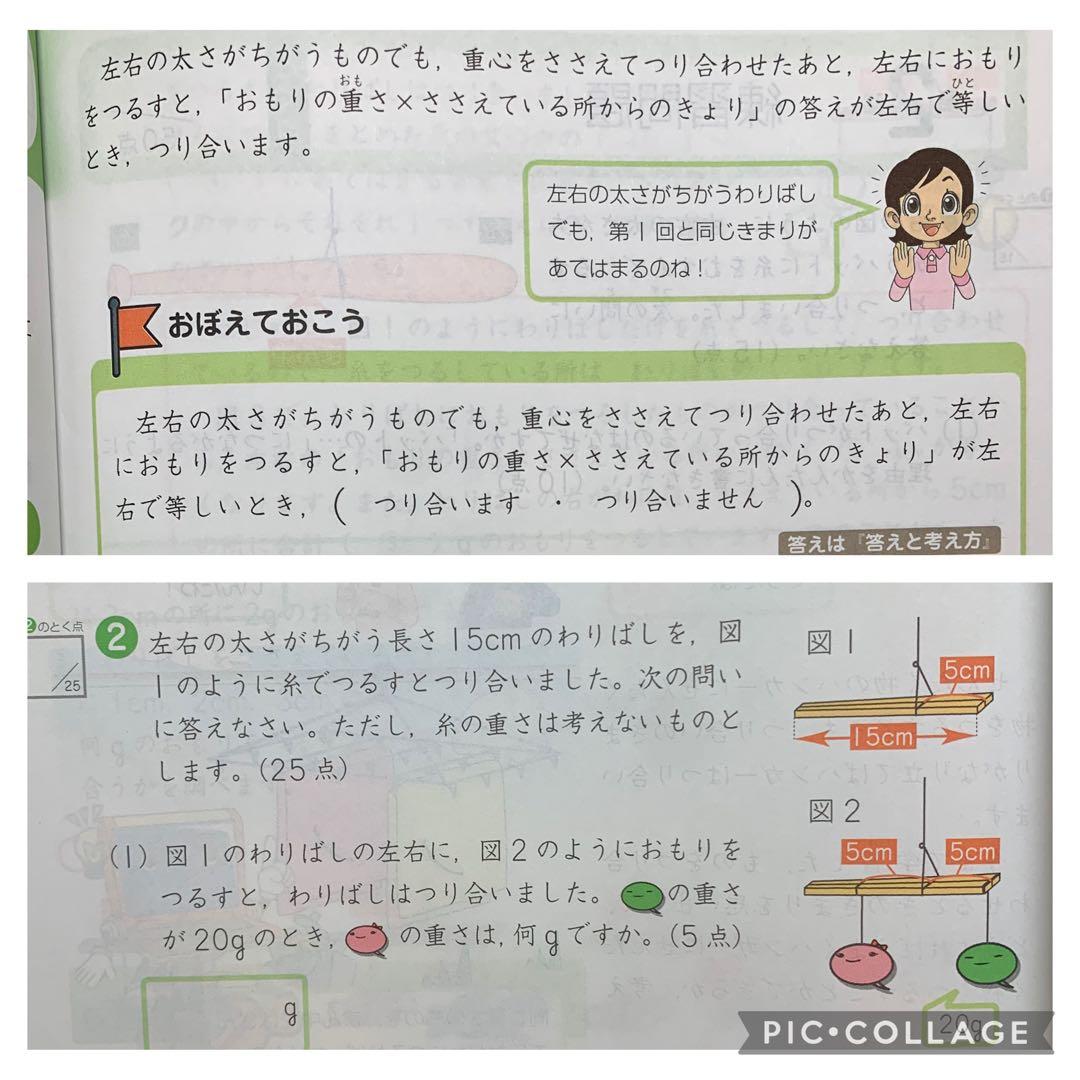 左右の太さがちがうものでも，重心をささえてつり合わせたあと，左右におもり
をつるすと，「おもりの重さ×ささえている所からのきょり」の答えが左右で等しい
おも
ひと
とき，つり合います。
左右の太さがちがうわりばし
でも，第1回と同じきまりが
あてはまるのね！
おぼえておこう
左右の太さがちがうものでも，重心をささえてつり合わせたあと，左右
におもりをつるすと，「おもりの重さ×ささえている所からのきょり」が左
右で等しいとき，（ つり合います ・ つり合いません ）。
答えは『答えと考え方』
2のとく点
/25
2 左右の太さがちがう長さ15cmのわりばしを，図
1のように糸でつるすとつり合いました。次の問い
に答えなさい。ただし，糸の重さは考えないものと
します。（25点）
図1
5cm
15cm
(1) 図1のわりばしの左右に，図2のようにおもりを
つるすと，わりばしはつり合いました。の重さ
が20gのとき，の重さは，何gですか。（5点）
g
図2
5cm
5cm
20g
PIC•COLLAGE